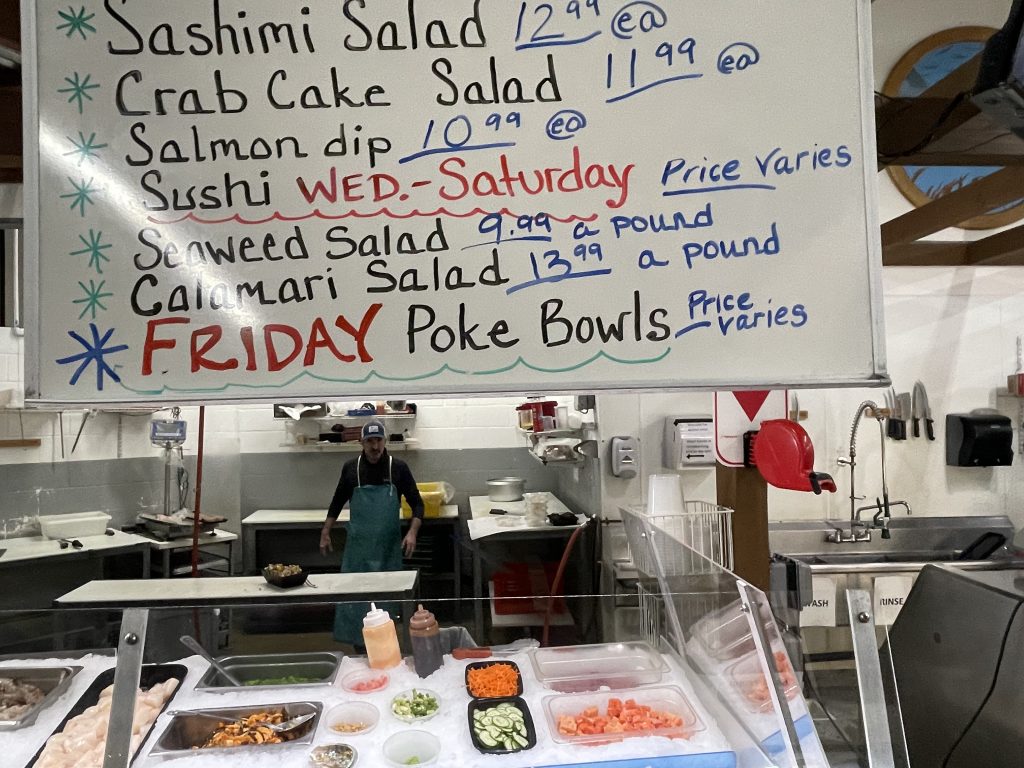 Sashimi Salad 12.99 ea
Crab Cake Salad 11.99 ea
Salmon dip 10.99 ea
Sushi WED.-Saturday Price varies
Seaweed Salad 9.99 a pound
Calamari Salad 13.99 a pound
FRIDAY Poke Bowls Price varies
WASH
RINSE